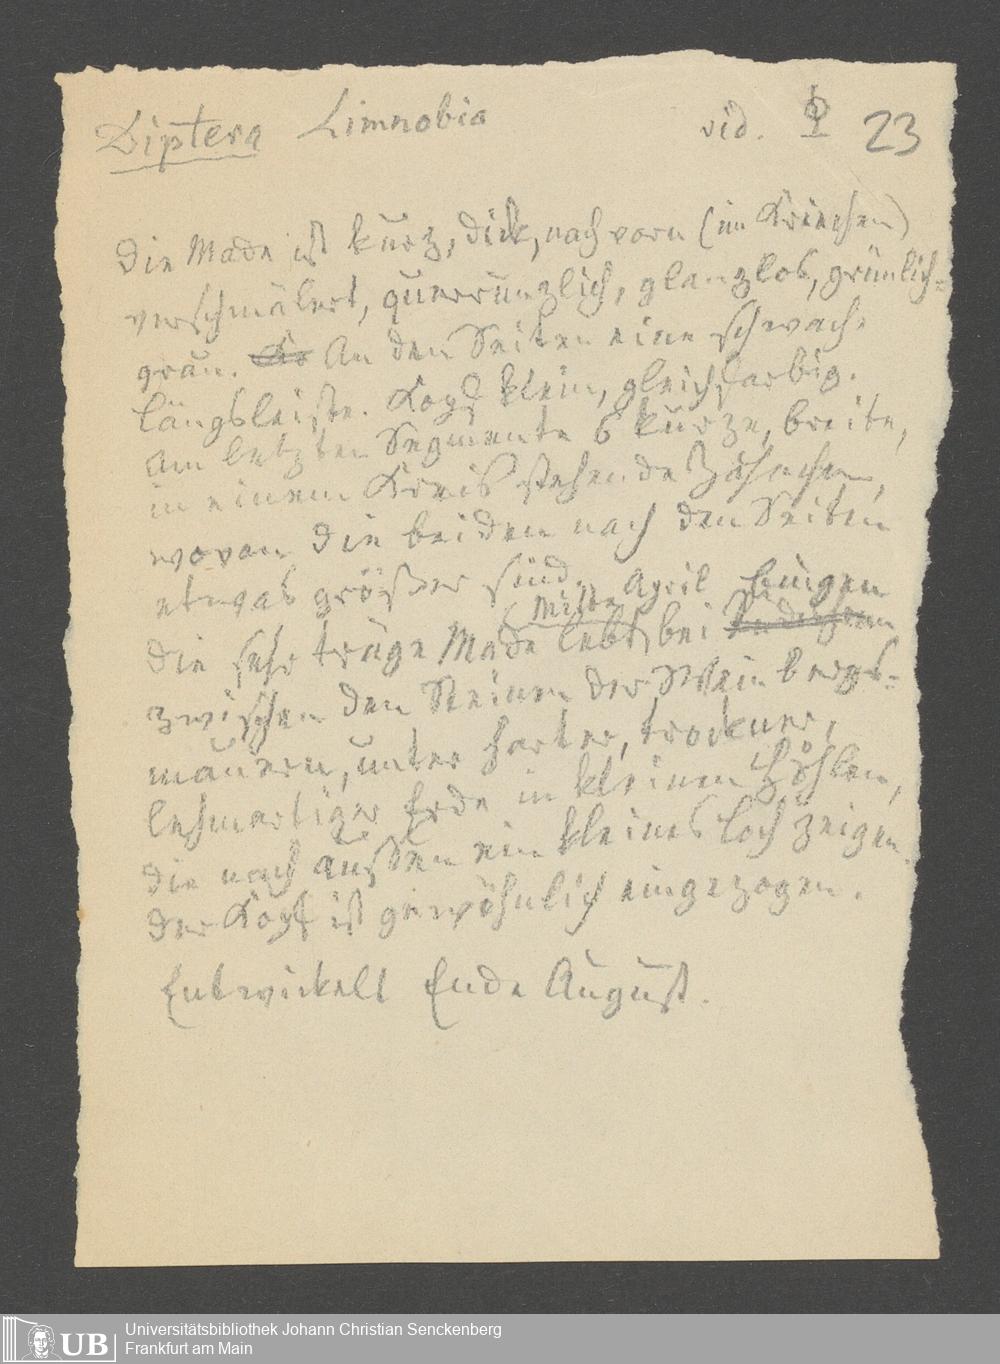 Diptera Limnobia vid. 23
Die Made ist kurz, dick, nach vorn (im Kriechen)
verschmälert, querrunzlich, glanzlos, grünlich=
grau. An den Seiten eine schwache
Längsleiste. Kopf klein, gleichfarbig.
Am letzten Segmente 6 kurze, breite,
in einem Kreis stehende Zähnchen,
wovon die beiden nach den Seiten
etwas größer sind.
Mitte April Bingen
Die sehr träge Made lebt bei
zwischen den Steinen der Weinbergs=
mauern, unter harter, trockner,
lehmartiger Erde in kleinen Höhlen,
die nach außen ein kleines Loch zeigen.
Der Kopf ist gewöhnlich eingezogen.
Entwickelt Ende August.
UB
Universitätsbibliothek Johann Christian Senckenberg
Frankfurt am Main